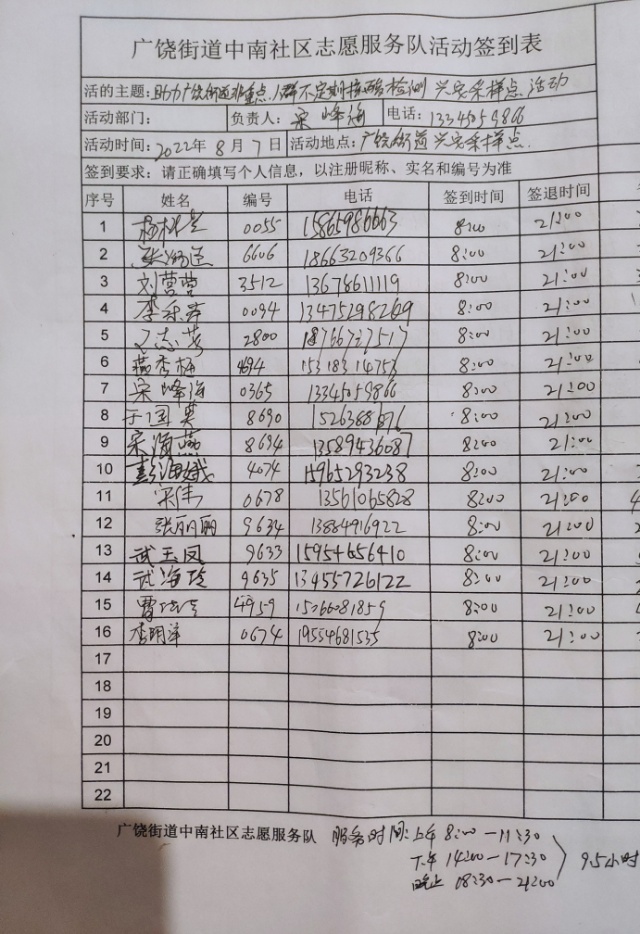 广饶街道中南社区志愿服务队活动签到表
活的主题：助力广饶街道非重点人群不定期核酸检测 兴安采样点 活动
活动部门： 负责人：宋峰海 电话：13345059866
活动时间：2022年8月7日 活动地点：广饶街道兴安采样点.
签到要求：请正确填写个人信息，以注册昵称、实名和编号为准
序号 姓名 编号 电话 签到时间 签退时间
1 0055 15865986663 8:00 21:00
2 6606 18663209366 8:00 21:00
3 刘营营 3512 13678611119 8:00 21:00
4 0094 13475298269 8:00 21:00
5 2800 8:00 21:00
6 燕秀梅 15318314753 8:00 21:00
7 宋峰海 0365 13345059866 8:00 21:00
8 于国英 8690 8:00 21:00
9 宋海燕 8694 13589436087 8:00 21:00
10 彭海娥 4074 15965293238 8:00 21:00
11 宋伟 0678 13561065828 8:00 21:00
12 张丽丽 9634 13884916922 8:00 21:00
13 武玉凤 9633 15954656410 8:00 21:00
14 武海玲 9635 13455726122 8:00 21:00
15 4959 15066081859 8:00 21:00
16 李明洋 0674 19554681535 8:00 21:00
17
18
19
20
21
22
广饶街道中南社区志愿服务队 服务时间：上午 8:00—11:30
下午 14:00—17:30
晚上 18:30—21:00
9.5小时